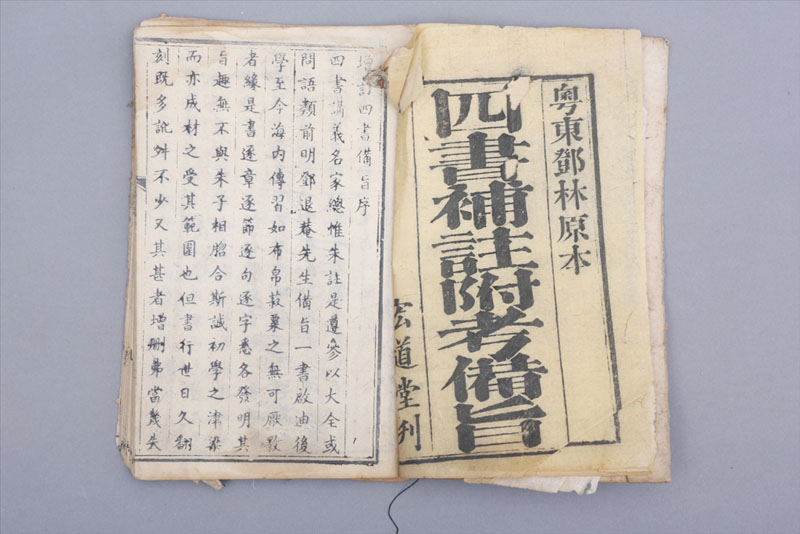 粤東鄧林原本
四書補註附考備旨
宏道堂刊
增訂四書備旨序
四書講義名家總惟朱註是遵參以大全或
問語類前明鄧退菴先生備旨一書啟迪後
學至今海內傳習如布帛菽粟之無可厭斁
者緣是書逐章逐節逐句逐字悉各發明其
旨趣無不與朱子相脗合斯誠初學之津梁
而亦成材之受其範圍也但書行世日久翻
刻既多訛舛不少又其甚者增刪弗當幾失